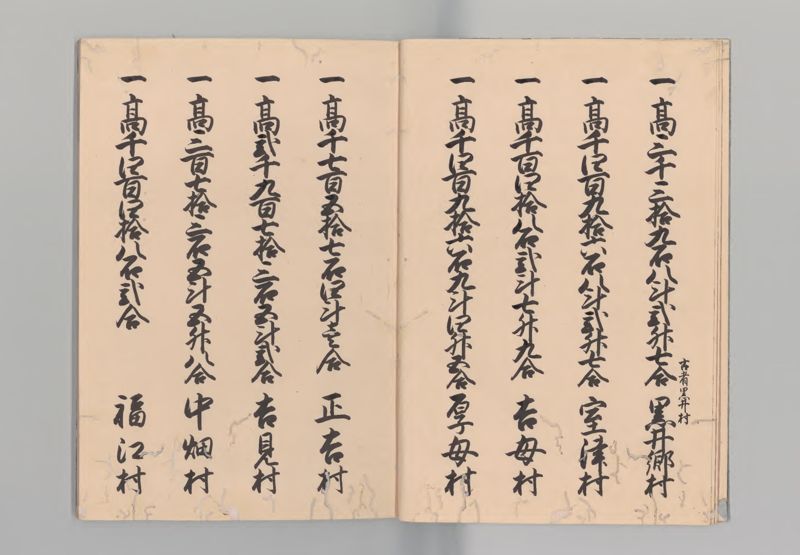 一高三千三拾九石八斗弐升七合 黒井郷村
古者黒井村
一高千四百九拾六石八斗弐升七合 室津村
一高千百四拾八石弐斗七升九合 吉母村
一高千四百九拾六石九斗四升五合 厚母村
一高千七百五拾七石四斗壱合 正吉村
一高弐千九百七拾三石五斗弐合 吉見村
一高三百七拾三石五斗五升八合 中畑村
一高千四百四拾八石弐合 福江村